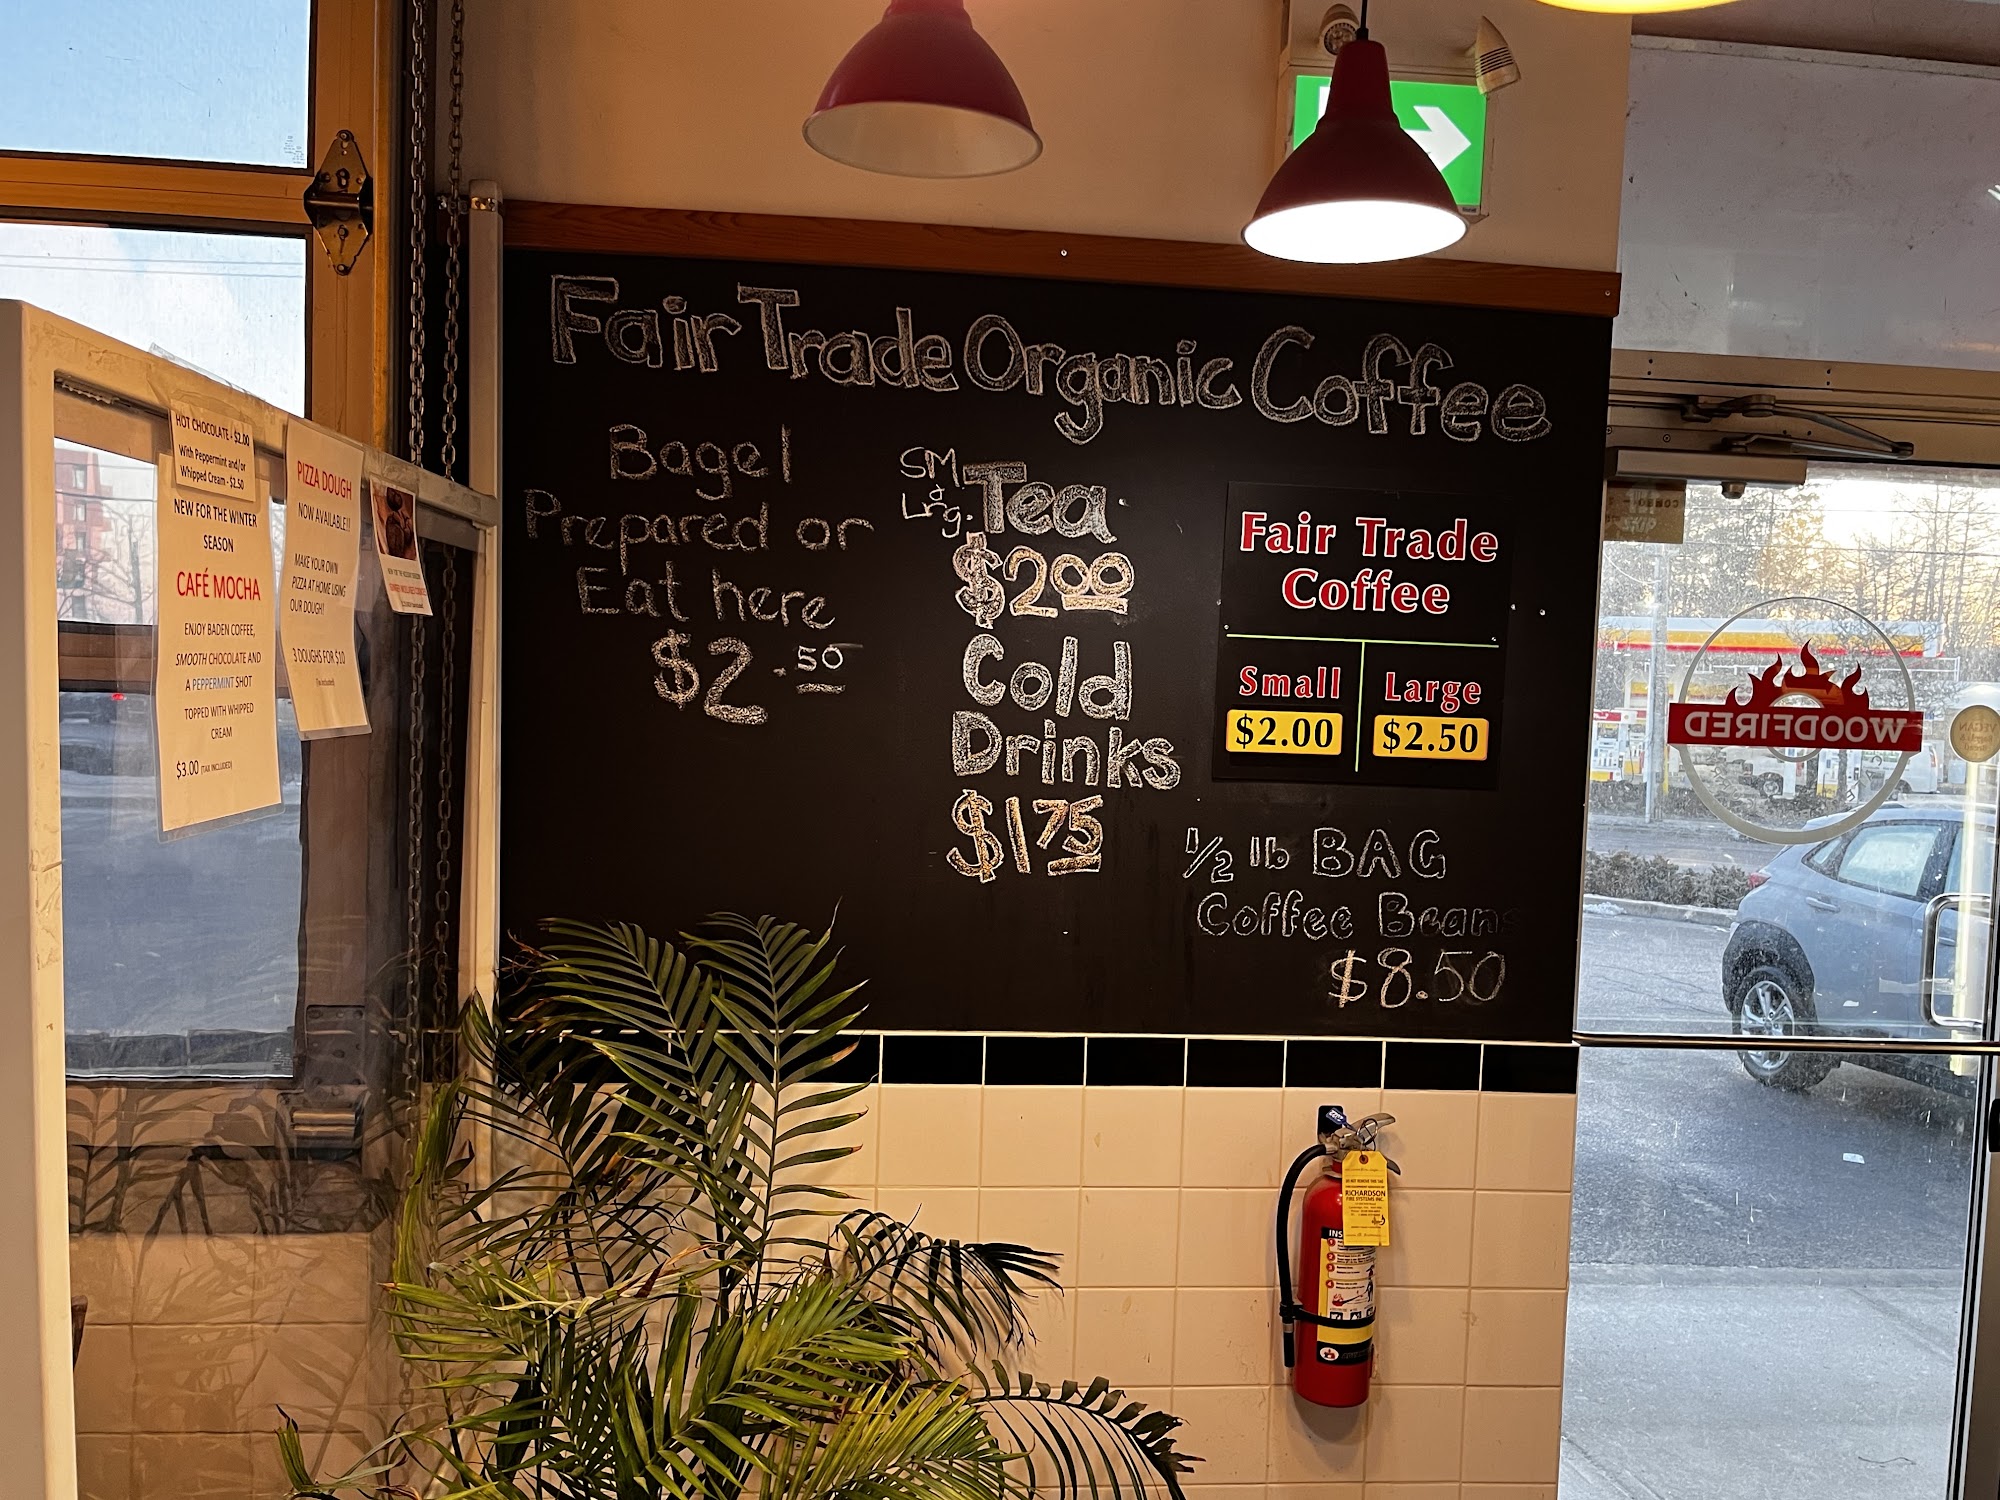 Fair Trade Organic Coffee
Bagel
Prepared or
Eat here
$2.50
SM
&
Lrg.
Tea
$2.00
Cold
Drinks
$1.75
Fair Trade
Coffee
Small
$2.00
Large
$2.50
1/2 lb BAG
Coffee Beans
$8.50
HOT CHOCOLATE - $2.00
With Peppermint and/or
Whipped Cream - $2.50
NEW FOR THE WINTER
SEASON
CAFÉ MOCHA
ENJOY BADEN COFFEE,
SMOOTH CHOCOLATE AND
A PEPPERMINT SHOT
TOPPED WITH WHIPPED
CREAM
$3.00 (TAX INCLUDED)
PIZZA DOUGH
NOW AVAILABLE!!
MAKE YOUR OWN
PIZZA AT HOME USING
OUR DOUGH!
3 DOUGHS FOR $10
WOODFIRED
RICHARDSON
FIRE SYSTEMS INC.